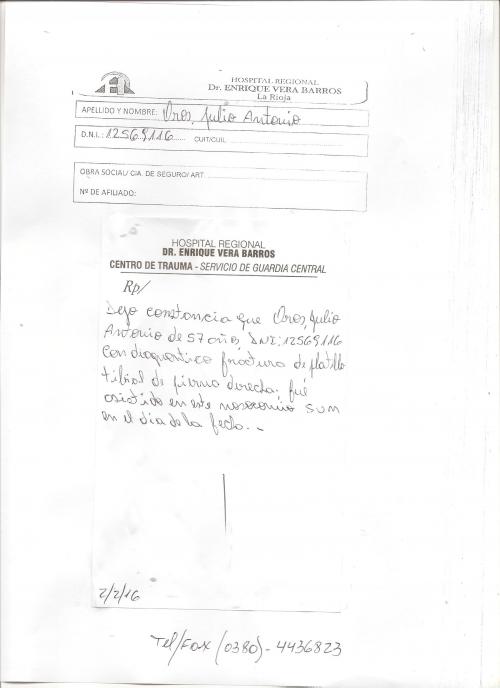 HOSPITAL REGIONAL
Dr. ENRIQUE VERA BARROS
La Rioja
APELLIDO Y NOMBRE: Oros, Julio Antonio
D.N.I.: 12569116 CUIT/CUIL
OBRA SOCIAL/ CIA. DE SEGURO/ ART
Nº DE AFILIADO:
HOSPITAL REGIONAL
DR. ENRIQUE VERA BARROS
CENTRO DE TRAUMA - SERVICIO DE GUARDIA CENTRAL
Rp/
Dejo constancia que Oros, Julio
Antonio de 57 años, DNI: 12569116
con diagnostico fractura de platillo
tibial de pierna derecha; fué
asistido en este nosocomio SUM
en el dia de la fecha.-
2/2/16
Tel/Fax (0380)-4436823